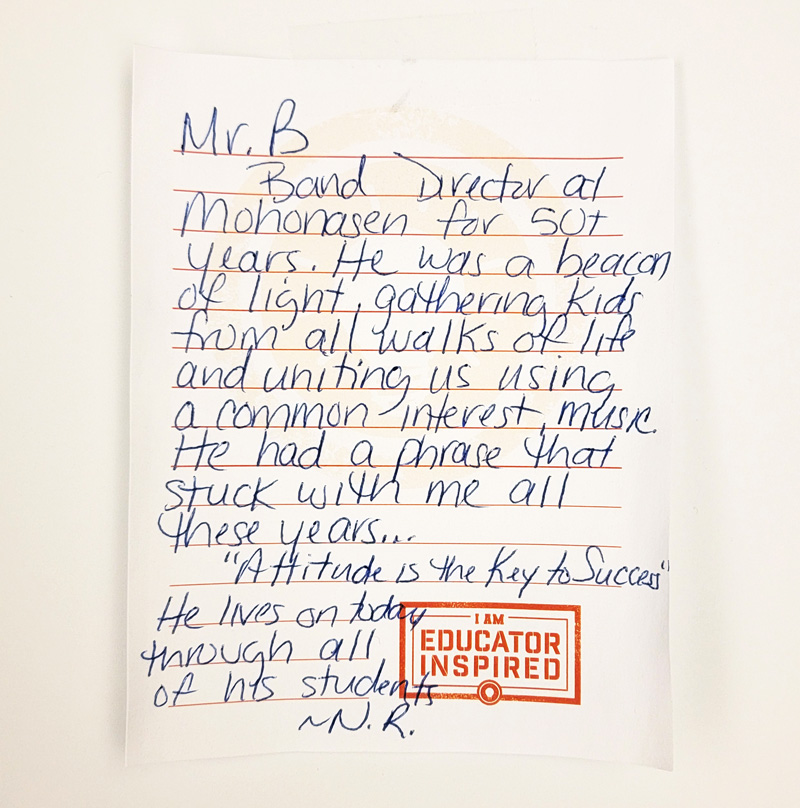 Mr. B
Band Director at
Mohonasen for 50+
years. He was a beacon
of light, gathering kids
from all walks of life
and uniting us using
a common interest, music.
He had a phrase that
stuck with me all
these years...
"Attitude is the Key to Success"
He lives on today
through all
of his students
~N.R.
I AM
EDUCATOR
INSPIRED